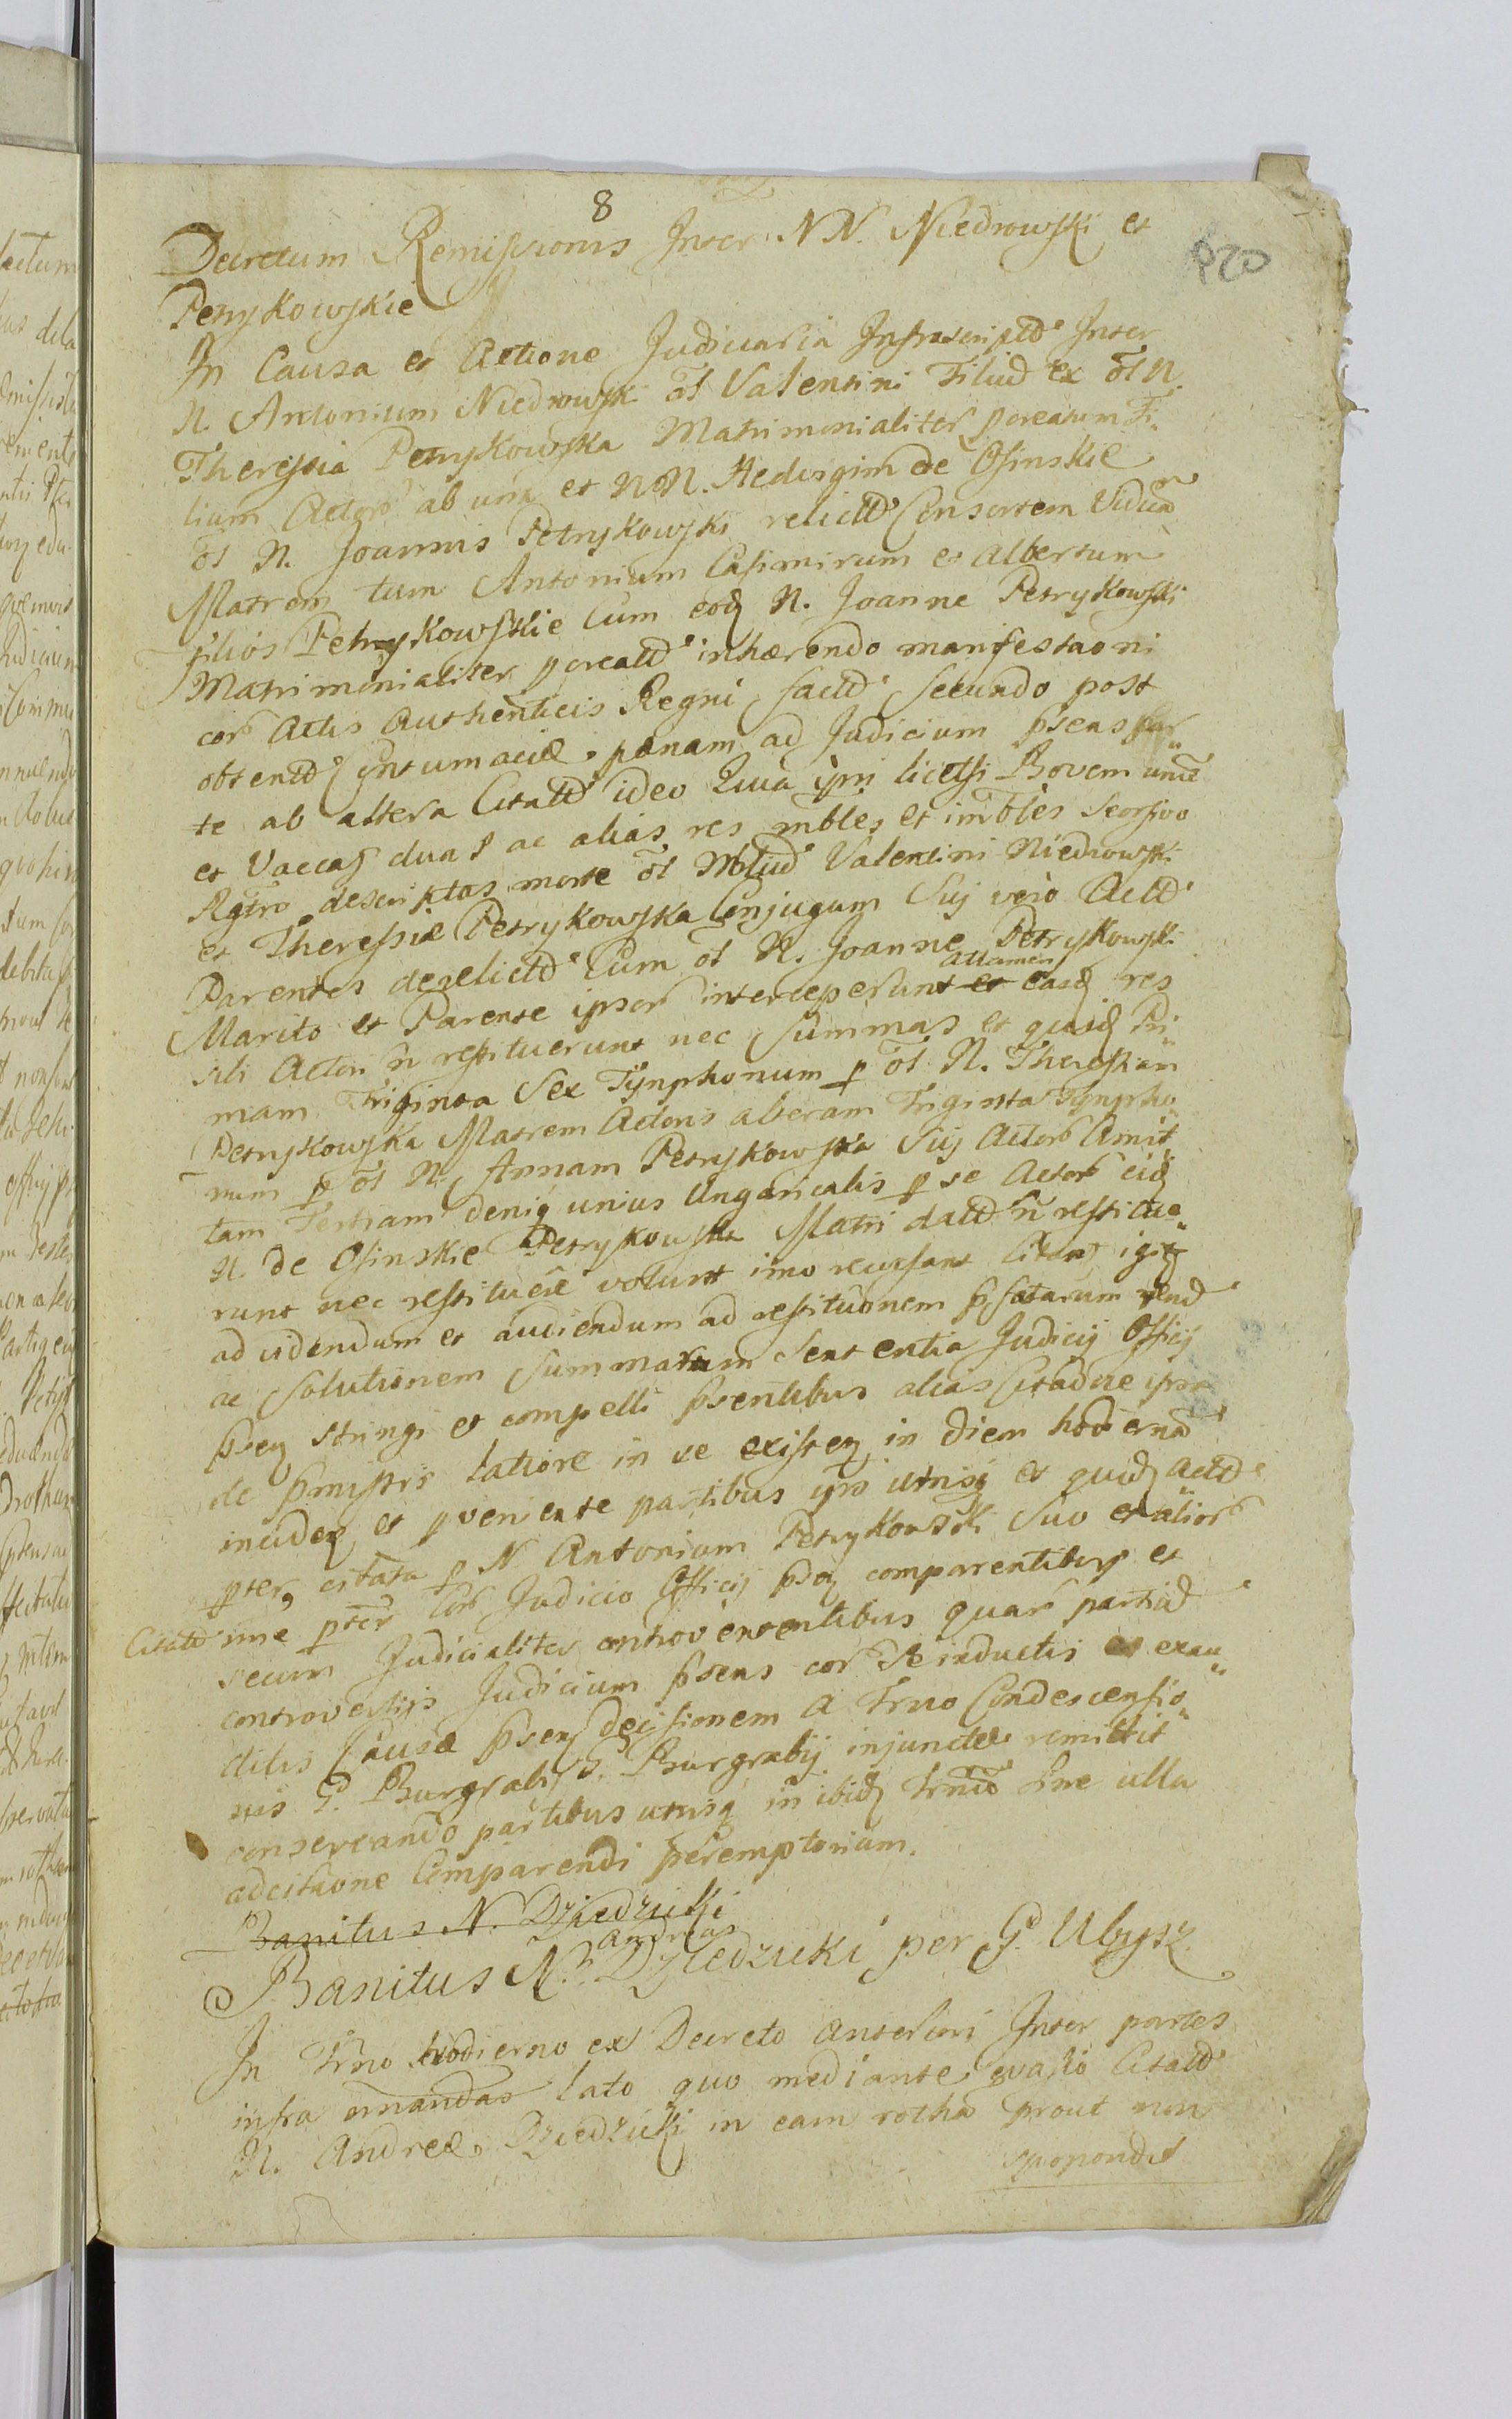 8
Decretum Remissionis Inter NN. Niedrowski et
920
Petrykowskie
In Causa et Actione Judiciaria Infrascriptt Inter
N. Antonium Niedrowski ol Valentini Filiud ex ol N.
Theressia Petrykowska Matrimonialiter pcreatum Fi„
lium Actor ab una et NN. Hedvigim de Osinskie
ol N. Joannis Petrykowski relictt Consortem Viduā
Matrem tum Antonium Casimirum et Albertum
filios Petrykowskie cum eodq N. Joanne Petrykowski
Matrimonialiter pcreatt inhærendo manifestaoni
cor Actis Authenticis Regni factt Secundo post
obtentt Contumaciæ pænam ad Judicium pſens par„
te ab altera Citatt ideo Quia ipsi licetsi Bovem unū
et Vaccas duas ac alias res mbles et imbles Seorsivo
Rgtro descriptas morte ol Nbliud Valentini Niedrowski
et Theressiæ Petrykowska Conjugum Sui vero Actt
Parentes derelictt cum ol N. Joanne Petrykowski
attamen
Marito et Parente ipsor interceperunt et easdq res
sibi Actori n̄ restituerunt nec Summas et quidq Pri„
mam Triginta Sex Tynphonum p ol N. Theressiam
Petrykowska Matrem Actoris alteram Triginta Tynpho„
num p ol N. Annam Petrykowska Sui Actor Amit„
tam Tertiam deniq unius Ungaricalis p se Actor eidq
N. de Osinskie Petrykowska Matri datt n̄ restitue„
runt nec restituere volunt imo recusant Citant igitq
ad videndum et audiendum ad restituonem pfatarum rerud
ac Solutionem Summarum Sententia Judicij Officij
pſen stringi et compelli pſentibus alias Citaōne ipsa
de pmissis latiore in se existen in diem hodiernā
inciden et pveniente partibus ipis utrisq et quidq Actt
pter, citata p N Antonium Petrykowski Suo et alior
Citatt nne pter cor Judicio Officij pſen comparentibus et
secum Judicialiter controvertentibus quar partiud
controversiis Judicium pſens cor se inductis et exau„
ditis Causæ pſen decisionem a Trno Condescensio„
nis G. Burgrabij G. Burgrabij injunctæ remittit
conservando partibus utrisq in ibidq Trnū Sine ulla
adcitaone Comparendi peremptorium.
Banitus N. Dziedzicki
Andreas
Banitus N. Dziedzicki per G. Ubysz
In Trno hodierno ex Decreto anteriori Inter partes
infra nnandas lato quo mediante evasio Citatt
N. Andreæ Dziedzicki in eam rotha prout non
spopondit